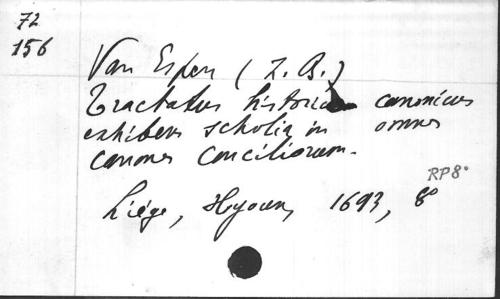 72
156
Van Espen (Z. B.)
Tractatus historico canonicus
exhibens scholia in omnes
canones conciliorum.
RP8°
Liége, Hyoun, 1693, 8°